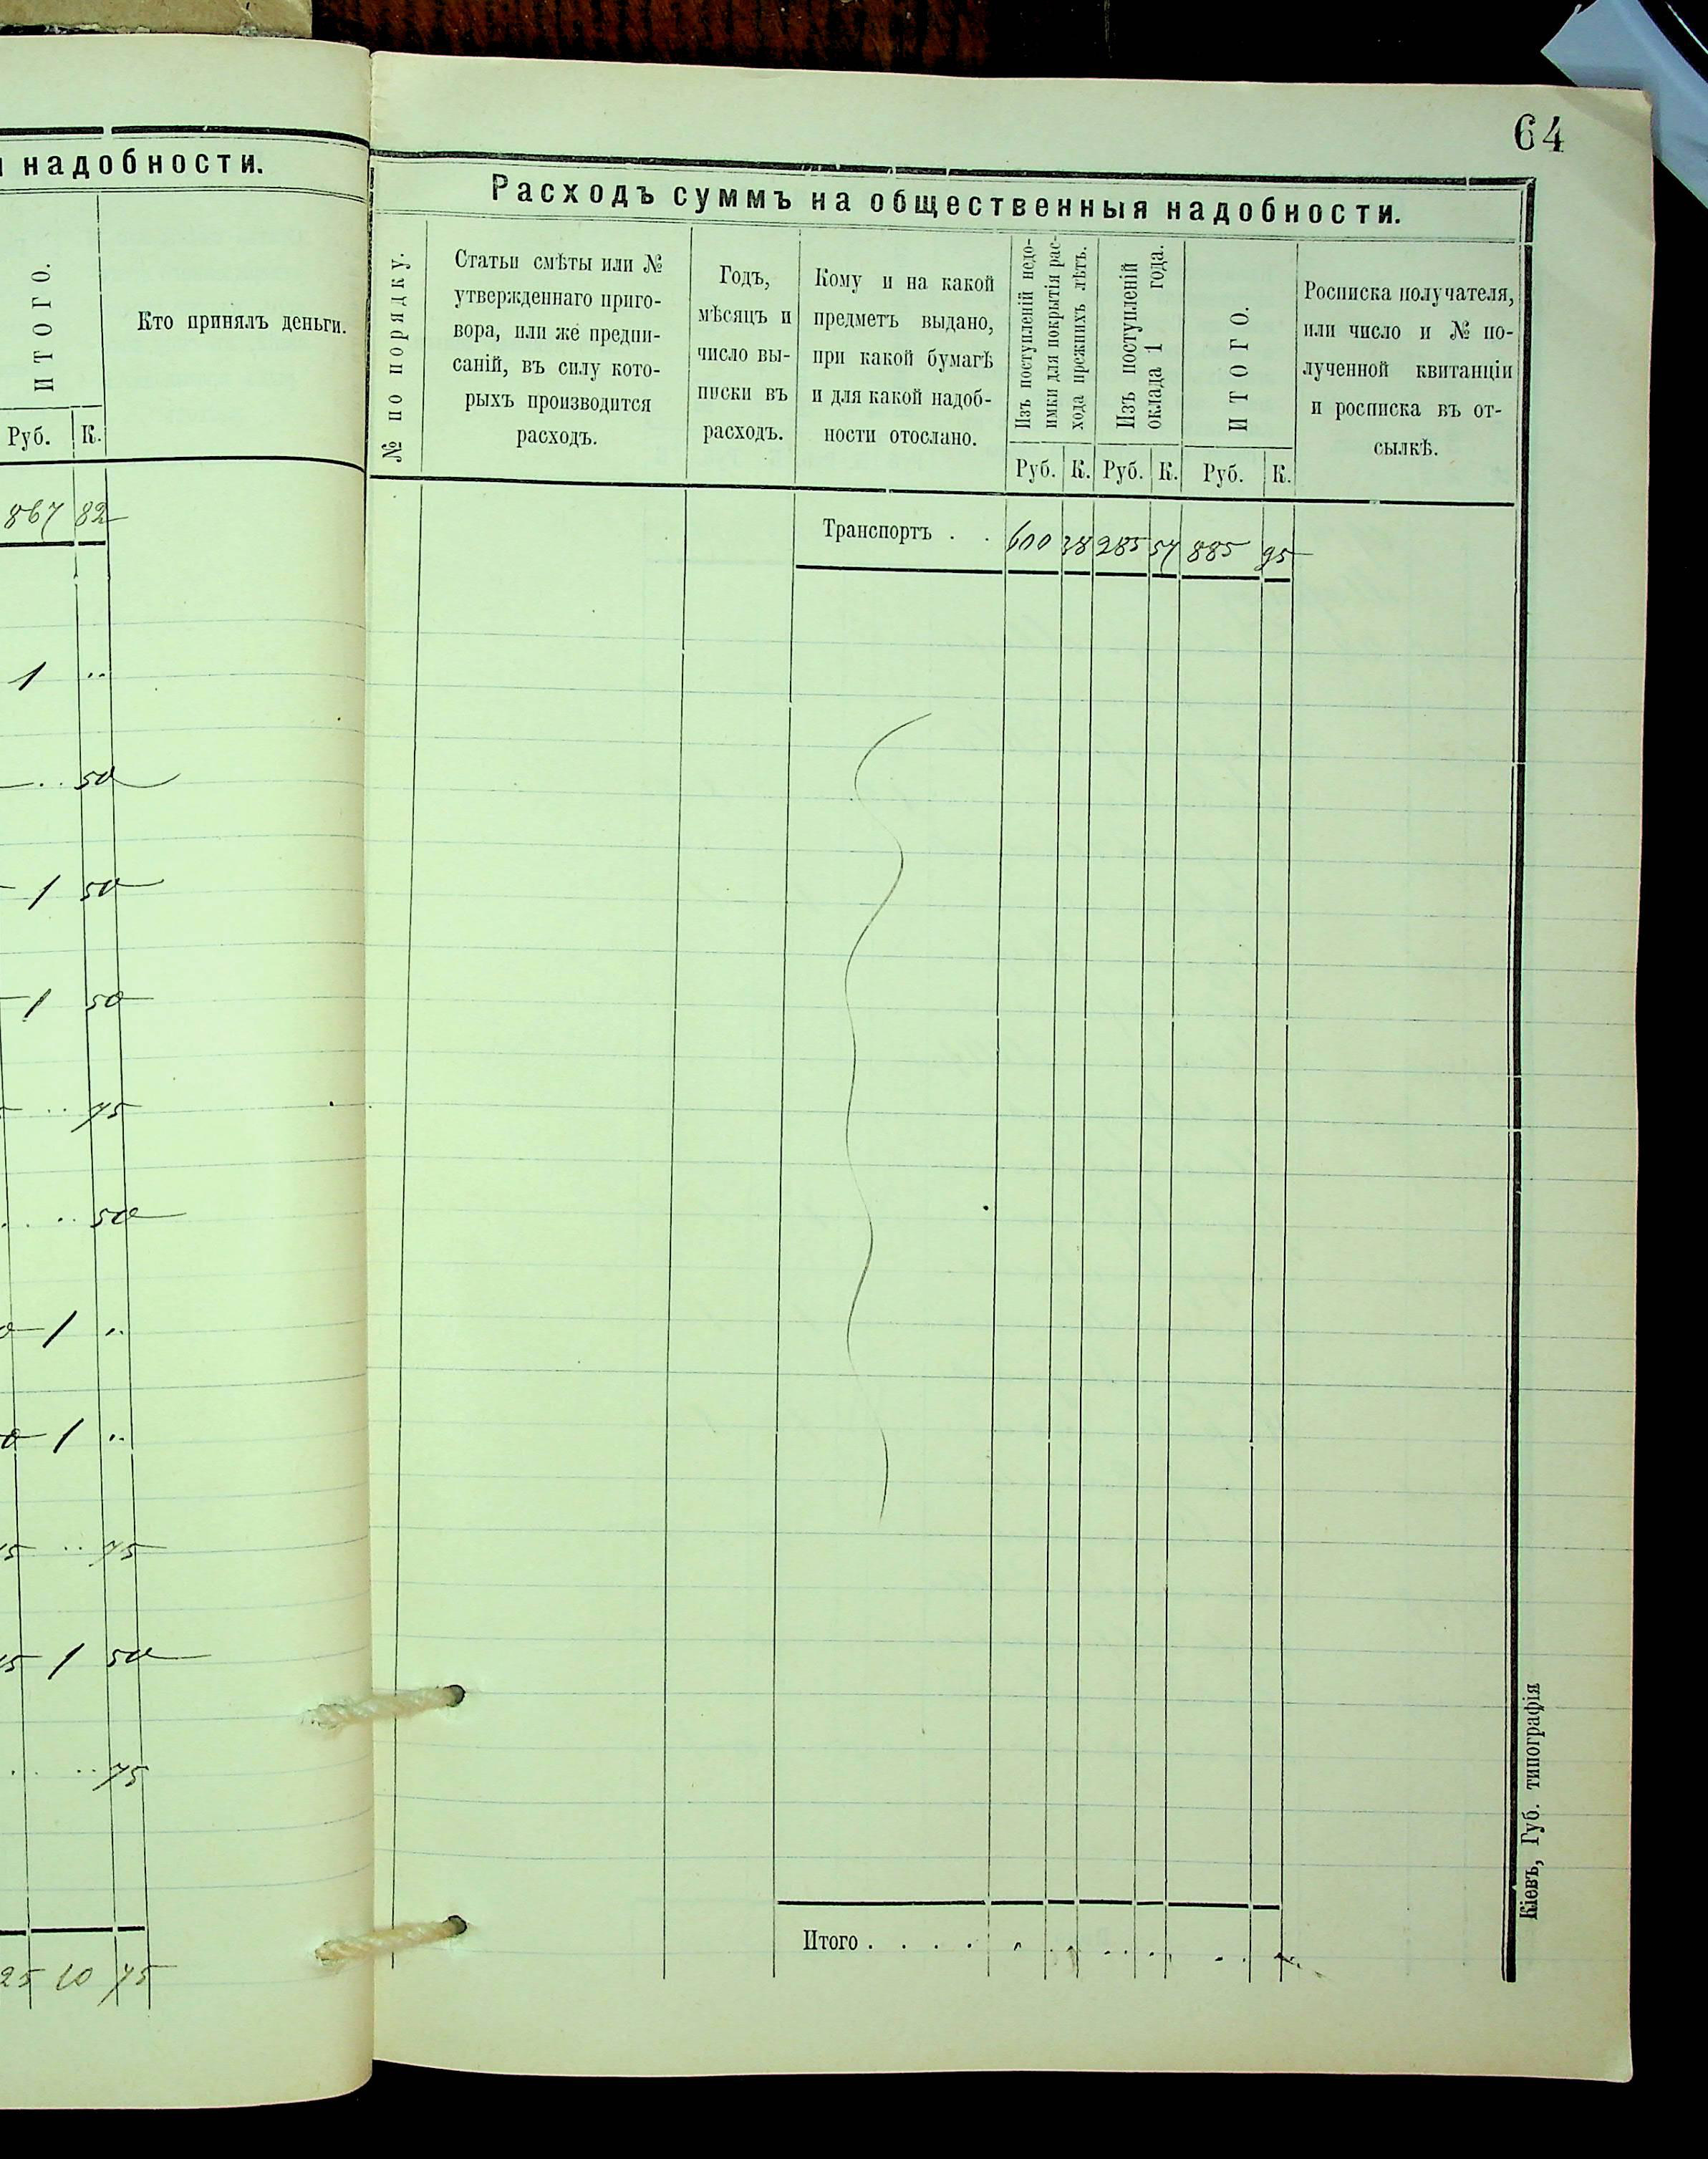 надобности.
ИТОГО.
Кто принялъ деньги.
Руб. К.
867 82
1 ..
.. 50
1 50
1 50
.. 75
.. 50
1 ..
1 ..
.. 75
1 50
.. 75
25 10 75
64
Расходъ суммъ на общественныя надобности.
№ по порядку.
Статьи смѣты или №
утвержденнаго приго-
вора, или же предпи-
саній, въ силу кото-
рыхъ производится
расходъ.
Годъ,
мѣсяцъ и
число вы-
писки въ
расходъ.
Кому и на какой
предметъ выдано,
при какой бумагѣ
и для какой надоб-
ности отослано.
Изъ поступленій недо-
имки для покрытія рас-
хода прежнихъ лѣтъ.
Изъ поступленій
оклада 1 года.
ИТОГО.
Росписка получателя,
или число и № по-
лученной квитанціи
и росписка въ от-
сылкѣ.
Руб. К. Руб. К. Руб. К.
Транспортъ . . 600 38 285 57 885 95
Итого . . . .
Кіевъ, Губ. типографія